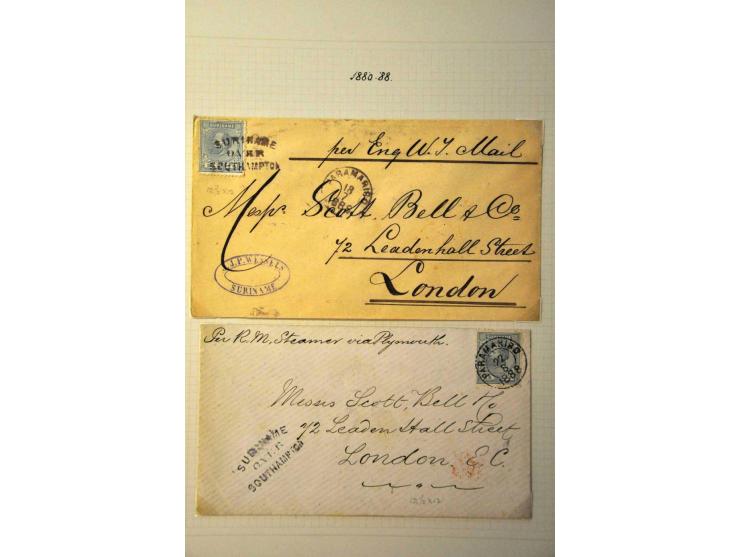 1880-88.
SURINAME
SURINAME
OVER
SOUTHAMPTON
12½ x 12
per Eng W. I. Mail
PARAMARIBO
18
7
Messrs. Scott. Bell & Co
72 Leadenhall Street
London
J.P. WESSELS
SURINAME
Per R.M. Steamer via Plymouth.
PARAMARIBO
Messrs Scott, Bell & Co
72 Leaden Hall Street
London, E.C.
SURINAME
OVER
SOUTHAMPTON
12½ x 12